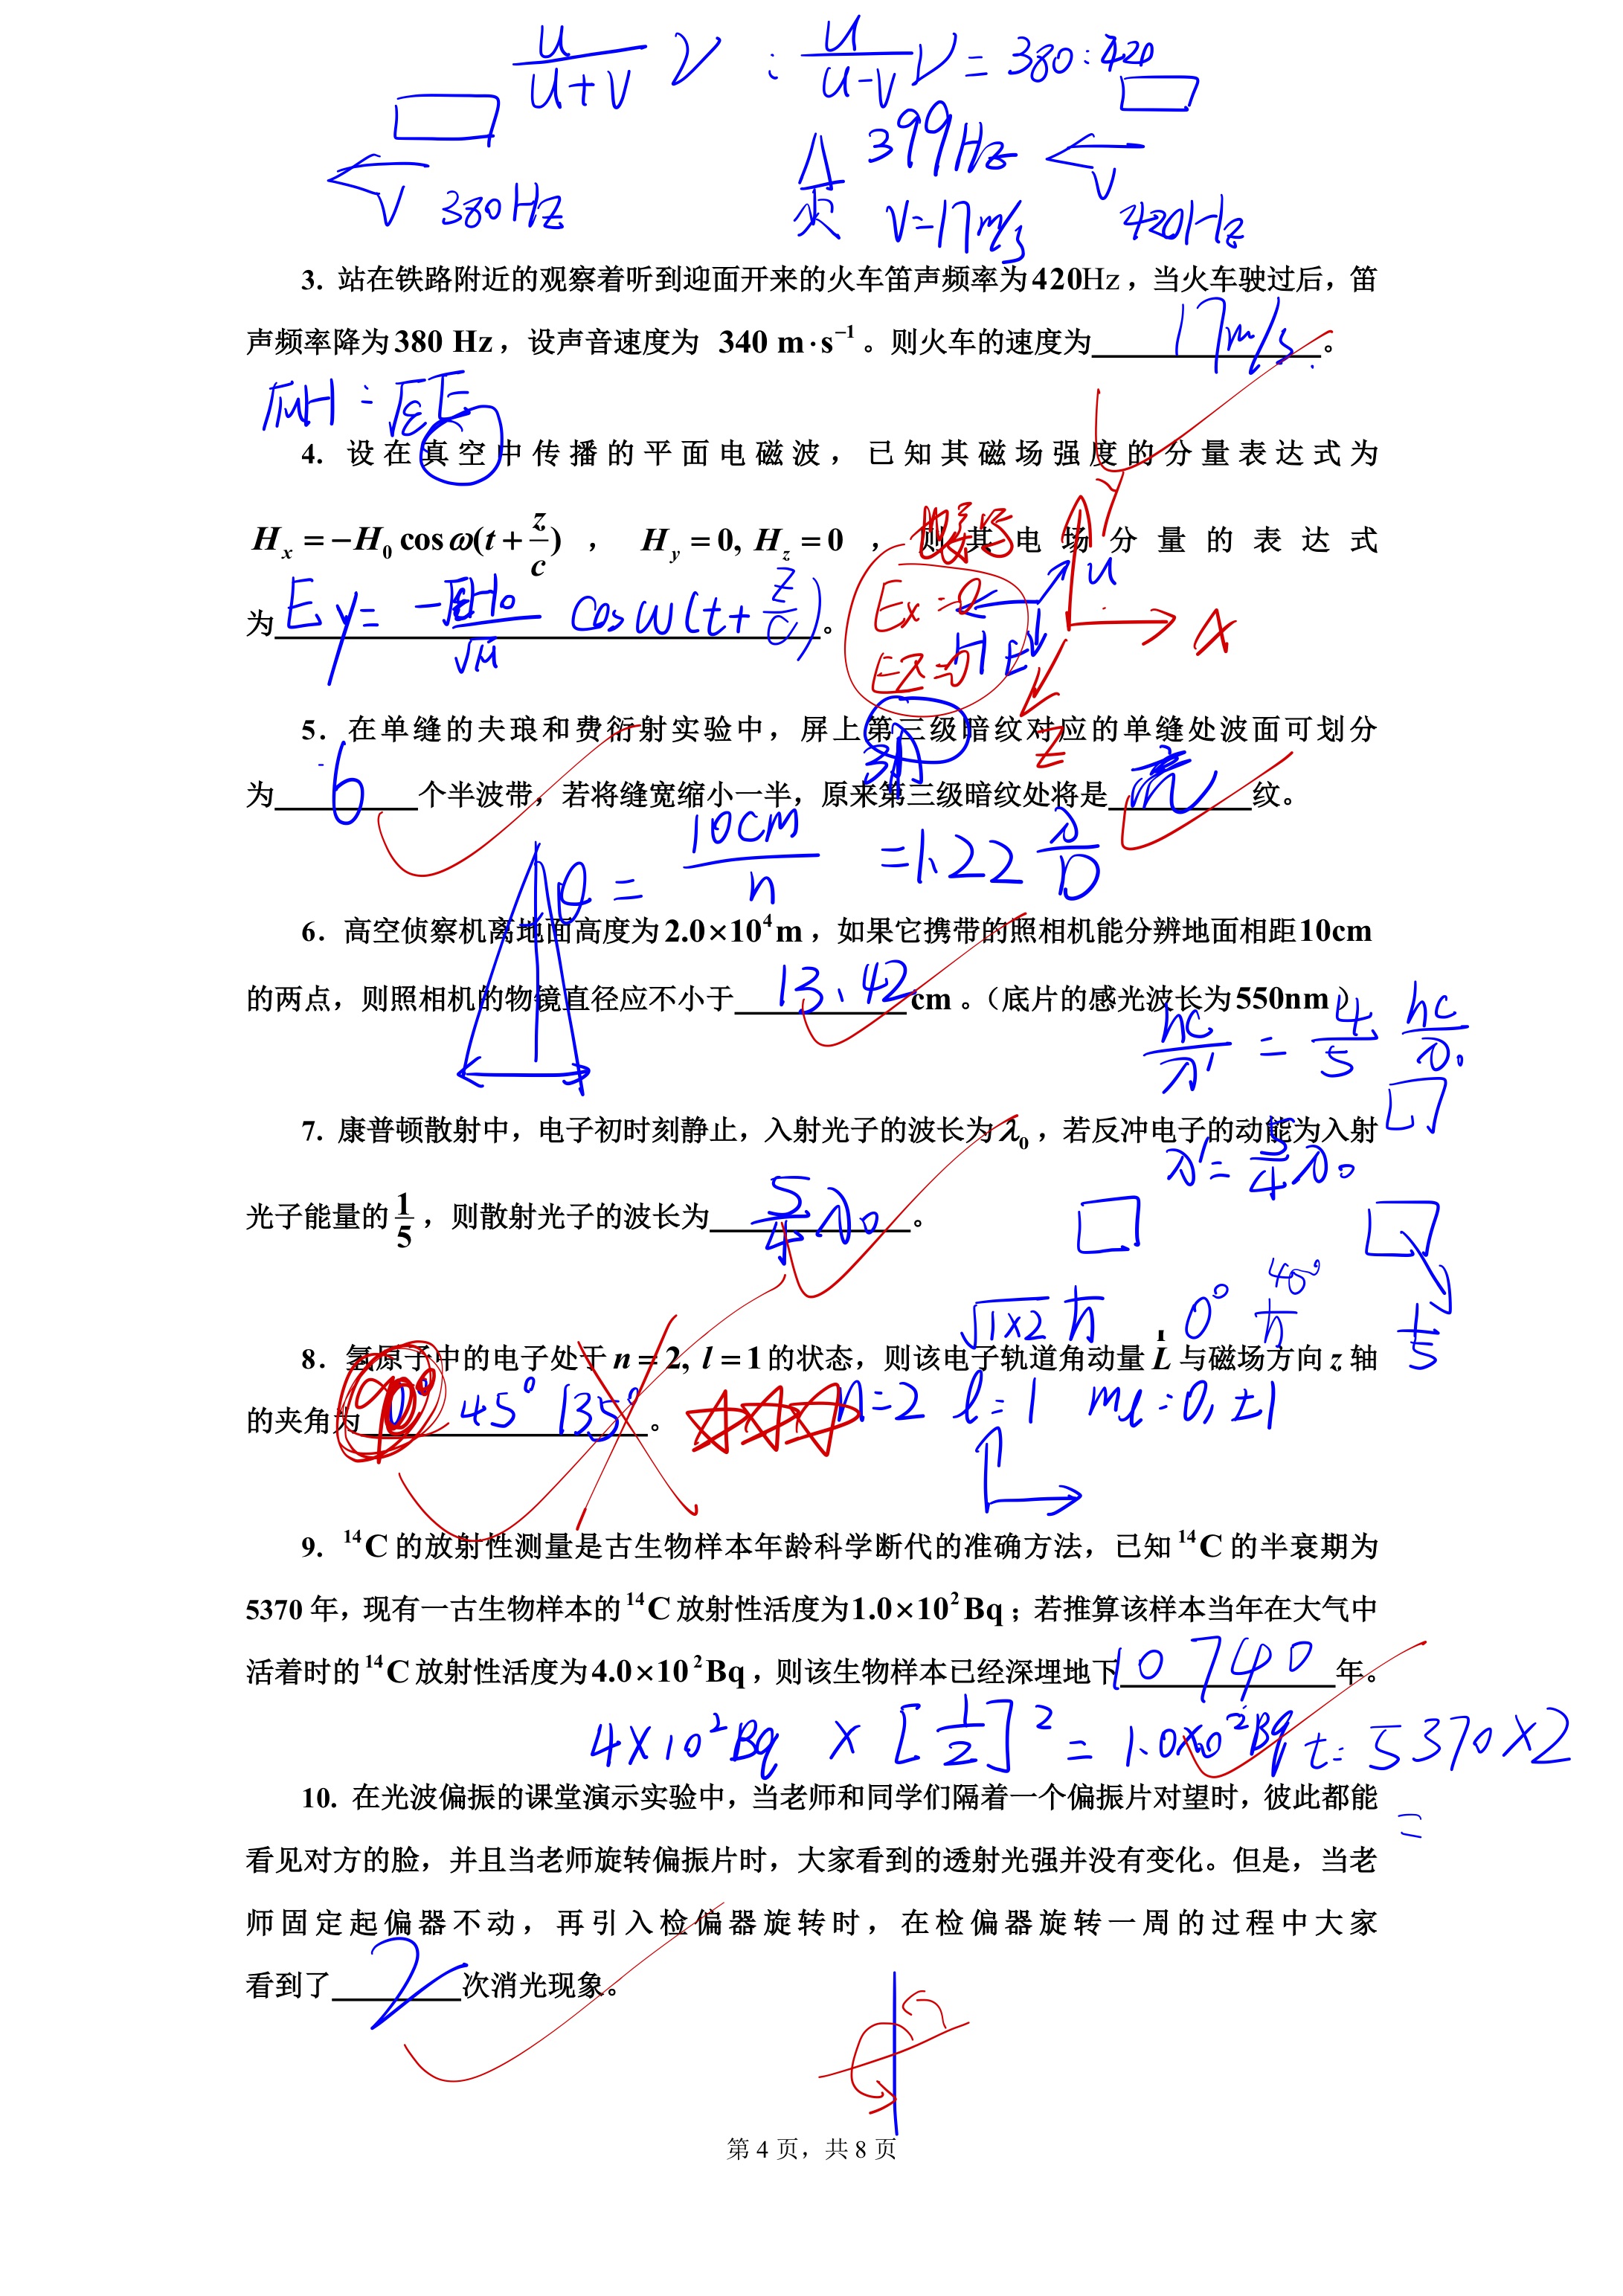 u/(u+v) ν : u/(u-v) ν = 380:420
399Hz
v 380Hz v=17m/s v 420Hz
3. 站在铁路附近的观察着听到迎面开来的火车笛声频率为420Hz，当火车驶过后，笛
声频率降为380 Hz，设声音速度为 340 m·s⁻¹。则火车的速度为 17m/s 。
√μH = √εE
4. 设在真空中传播的平面电磁波，已知其磁场强度的分量表达式为
Hx = −H0 cos ω(t + z/c)，Hy = 0, Hz = 0，则其电场分量的表达式
为 Ey = −√μH0/√ε cos ω(t + z/c) 。
Ex=0
Ez=0
H E u
y x z
5. 在单缝的夫琅和费衍射实验中，屏上第三级暗纹对应的单缝处波面可划分
3λ
为 6 个半波带，若将缝宽缩小一半，原来第三级暗纹处将是 亮 纹。
θ = 10cm/h = 1.22 λ/D
6. 高空侦察机离地面高度为2.0×10⁴m，如果它携带的照相机能分辨地面相距10cm
的两点，则照相机的物镜直径应不小于 13.42 cm。（底片的感光波长为550nm）
hc/λ' = 4/5 hc/λ0
7. 康普顿散射中，电子初时刻静止，入射光子的波长为λ0，若反冲电子的动能为入射
λ' = 5/4 λ0
光子能量的1/5，则散射光子的波长为 5/4 λ0 。
1/5
√1×2 ħ 0°
8. 氢原子中的电子处于 n = 2, l = 1 的状态，则该电子轨道角动量 L 与磁场方向 z 轴
的夹角为 90° 45° 135° 。
n=2 l=1 ml=0,±1
9. ¹⁴C 的放射性测量是古生物样本年龄科学断代的准确方法，已知¹⁴C 的半衰期为
5370 年，现有一古生物样本的¹⁴C 放射性活度为1.0×10²Bq；若推算该样本当年在大气中
活着时的¹⁴C 放射性活度为4.0×10²Bq，则该生物样本已经深埋地下 10740 年。
4×10²Bq × [1/2]² = 1.0×10²Bq t=5370×2
=
10. 在光波偏振的课堂演示实验中，当老师和同学们隔着一个偏振片对望时，彼此都能
看见对方的脸，并且当老师旋转偏振片时，大家看到的透射光强并没有变化。但是，当老
师固定起偏器不动，再引入检偏器旋转时，在检偏器旋转一周的过程中大家
看到了 2 次消光现象。
第 4 页，共 8 页